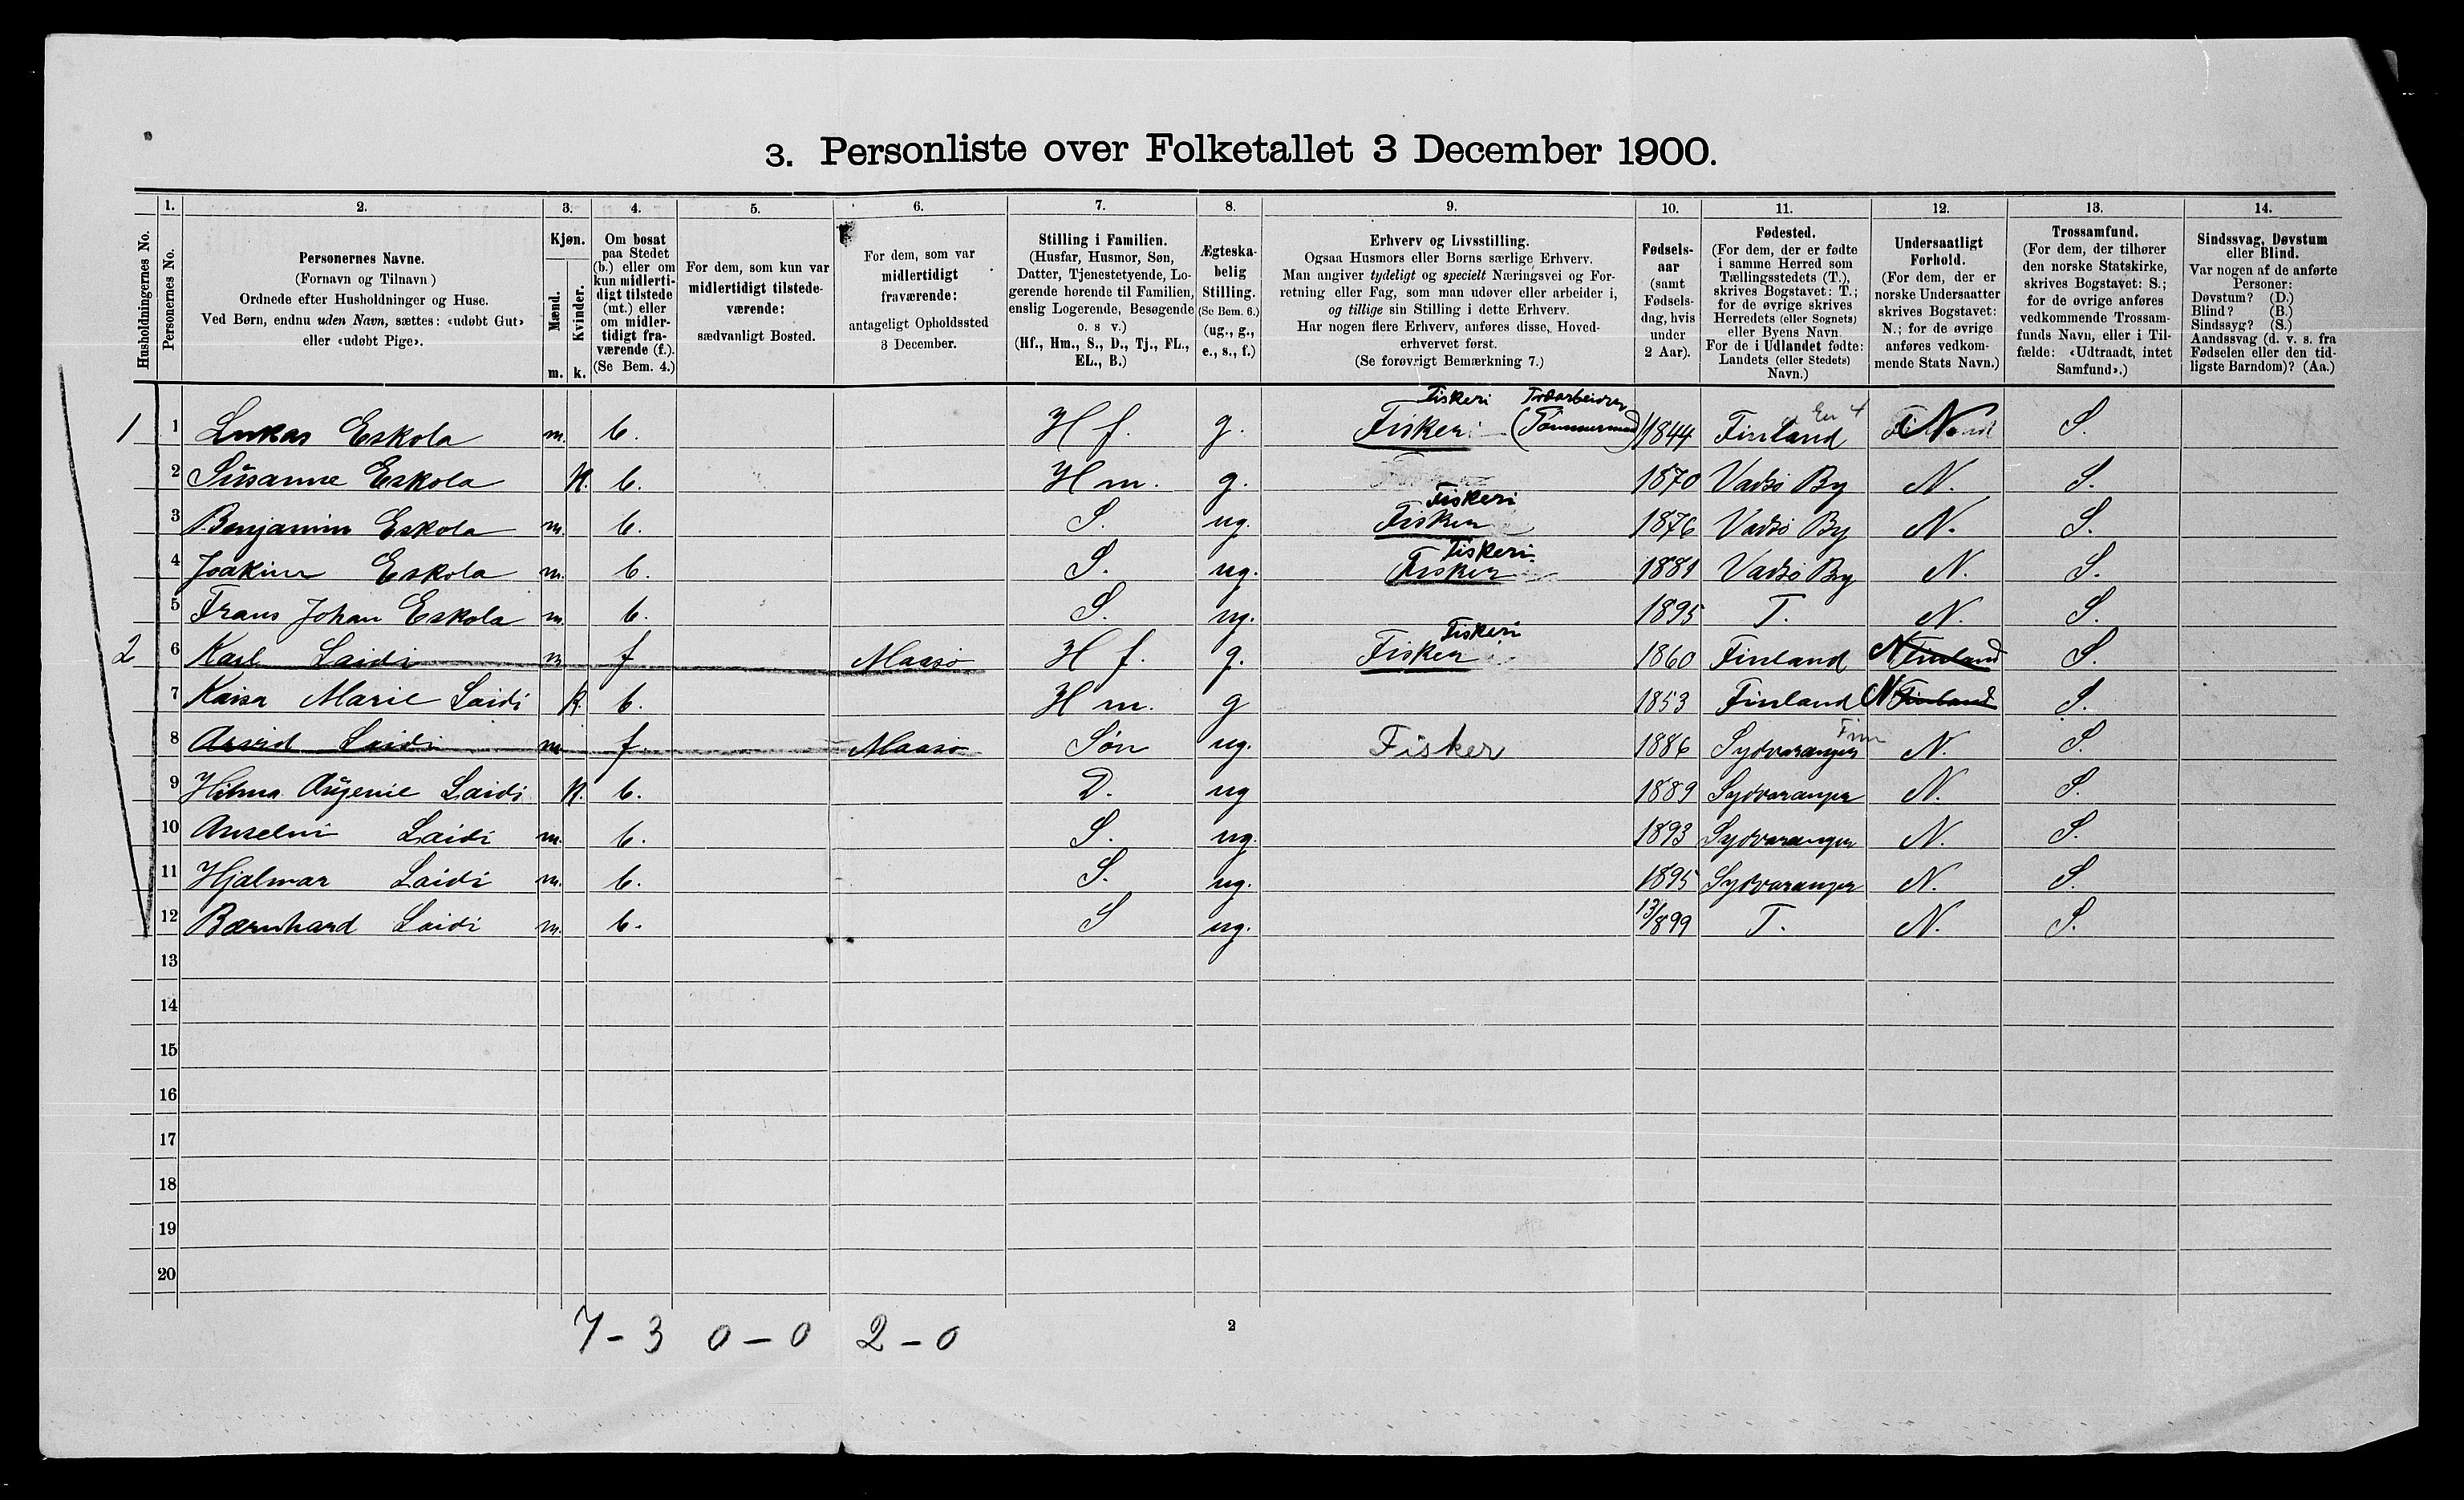 3. Personliste over Folketallet 3 December 1900.
1. 2. 3. 4. 5. 6. 7. 8. 9. 10. 11. 12. 13. 14.
Husholdningernes No.
Personernes No.
Personernes Navne.
(Fornavn og Tilnavn)
Ordnede efter Husholdninger og Huse.
Ved Børn, endnu uden Navn, sættes: «udøbt Gut»
eller «udøbt Pige».
Kjøn.
Mænd.
Kvinder.
m. k.
Om bosat
paa Stedet
(b.) eller om
kun midlerti-
digt tilstede
(mt.) eller
om midler-
tidigt fra-
værende (f.).
(Se Bem. 4.)
For dem, som kun var
midlertidigt tilstede-
værende:
sædvanligt Bosted.
For dem, som var
midlertidigt
fraværende:
antageligt Opholdssted
3 December.
Stilling i Familien.
(Husfar, Husmor, Søn,
Datter, Tjenestetyende, Lo-
gerende hørende til Familien,
enslig Logerende, Besøgende
o. s v.)
(Hf., Hm., S., D., Tj., FL.,
EL., B.)
Ægteska-
belig
Stilling.
(Se Bem. 6.)
(ug., g.,
e., s., f.)
Erhverv og Livsstilling.
Ogsaa Husmors eller Børns særlige Erhverv.
Man angiver tydeligt og specielt Næringsvei og For-
retning eller Fag, som man udøver eller arbeider i,
og tillige sin Stilling i dette Erhverv.
Har nogen flere Erhverv, anføres disse, Hoved-
erhvervet først.
(Se forøvrigt Bemærkning 7.)
Fødsels-
aar
(samt
Fødsels-
dag, hvis
under
2 Aar).
Fødested.
(For dem, der er fødte
i samme Herred som
Tællingsstedets (T.),
skrives Bogstavet: T.;
for de øvrige skrives
Herredets (eller Sognets)
eller Byens Navn.
For de i Udlandet fødte:
Landets (eller Stedets)
Navn.)
Undersaatligt
Forhold.
(For dem, der er
norske Undersaatter
skrives Bogstavet:
N.; for de øvrige
anføres vedkom-
mende Stats Navn.)
Trossamfund.
(For dem, der tilhører
den norske Statskirke,
skrives Bogstavet: S.;
for de øvrige anføres
vedkommende Trossam-
funds Navn, eller i Til-
fælde: «Udtraadt, intet
Samfund».)
Sindssvag, Døvstum
eller Blind.
Var nogen af de anførte
Personer:
Døvstum? (D.)
Blind? (B.)
Sindssyg? (S.)
Aandssvag (d. v. s. fra
Fødselen eller den tid-
ligste Barndom)? (Aa.)
Fiskeri Træarbeider
1 1 Lukas Eskola m. b. Hf. g. Fisker (Tømmermand) 1844 Finland N. S.
2 Susanne Eskola k. b. Hm. g. 1870 Vadsø By N. S.
Fiskeri
3 Benjamin Eskola m. b. S. ug. Fisker 1876 Vadsø By N. S.
Fiskeri
4 Joakim Eskola m. b. S. ug. Fisker 1881 Vadsø By N. S.
5 Frans Johan Eskola m. b. S. ug. 1895 T. N. S.
Fiskeri
2 6 Karl Laidi m f Maasø Hf. g. Fisker 1860 Finland N Finland S.
7 Kaisa Marie Laidi k. b. Hm. g 1853 Finland N Finland S.
8 Arvid Laidi m f. Maasø Søn ug. Fisker 1886 Sydvaranger N. S.
9 Hilma Eugenie Laidi k. b. D. ug 1889 Sydvaranger N. S.
10 Anselm Laidi m. b. S. ug. 1893 Sydvaranger N. S.
11 Hjalmar Laidi m. b. S. ug. 1895 Sydvaranger N. S.
12 Bærnhard Laidi m. b. S ug. 13/899 T. N. S.
13
14
15
16
17
18
19
20
7-3 0-0 2-0
2